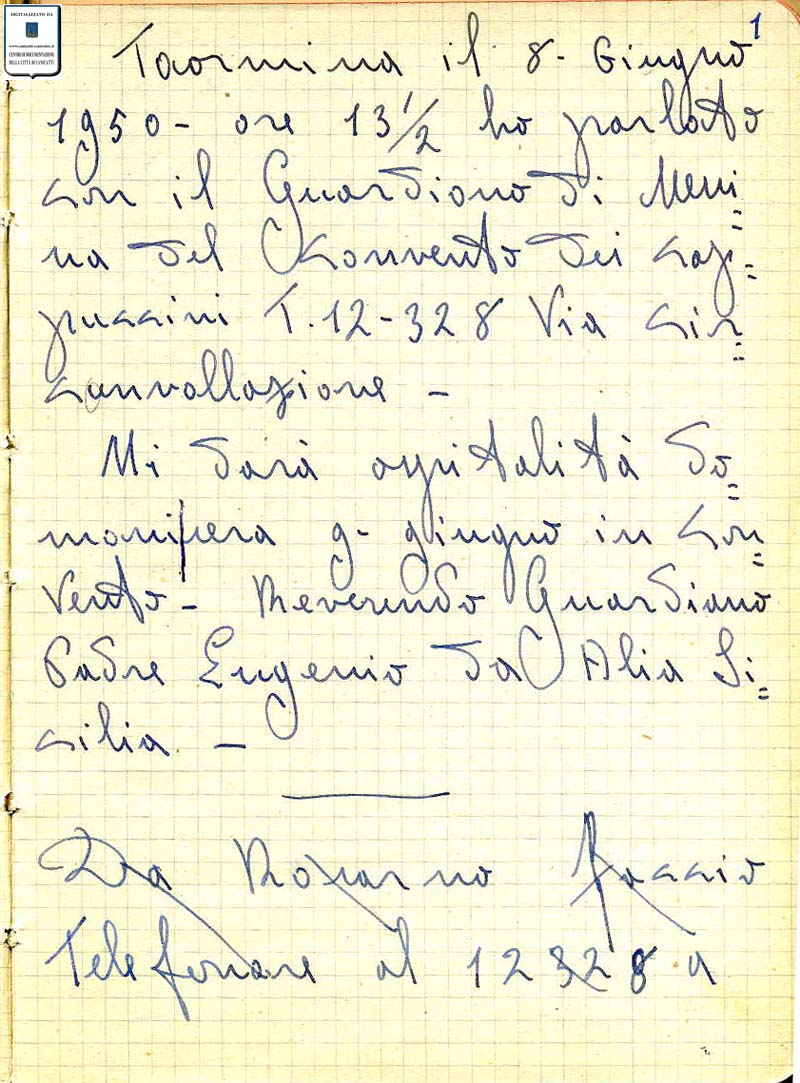 DIGITALIZZATO DA
CENTRO DI DOCUMENTAZIONE
DELLA CITTÀ DI CANICATTÌ
1
Taormina il 8- Giugno
1950- ore 13 1/2 ho parlato
con il Guardiano di Messi=
na del Convento dei cap=
puccini T. 12-328 Via Cir=
canvallazione -
Mi darà ospitalità do=
mani sera 9- giugno in Con=
vento - Reverendo Guardiano
Padre Eugenio da Alia Si=
cilia. -
Da faccio
Telefonare al 12328 a